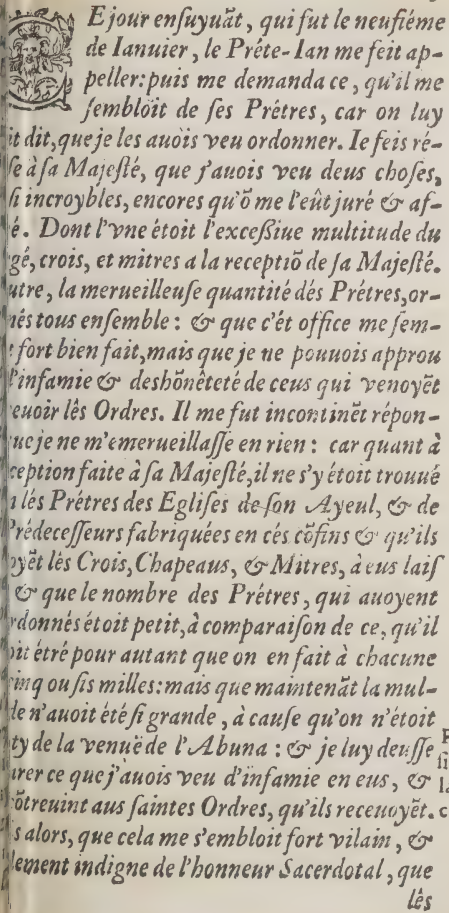 E jour enſuyuãt, qui fut le neufiéme
de Ianuier, le Préte-Ian me feit ap-
peller: puis me demanda ce, qu'il me
ſembloit de ſes Prétres, car on luy
it dit, que je les auois veu ordonner. Ie feis ré-
ſe à ſa Majeſté, que j'auois veu deus choſes,
ſi incroybles, encores qu'õ me l'eût juré & af-
é. Dont l'vne étoit l'exceßiue multitude du
gé, crois, et mitres a la receptiõ de ſa Majeſté.
utre, la merueilleuſe quantité dés Prétres, or-
nés tous enſemble: & que c'ét office me ſem-
t fort bien fait, mais que je ne pouuois approu
l'infamie & deshõnêteté de ceus qui venoyẽt
euoir lês Ordres. Il me fut incontinẽt répon-
que je ne m'emerueillaſſe en rien: car quant à
ception faite à ſa Majeſté, il ne s'y étoit trouué
lés Prétres des Egliſes de ſon Ayeul, & de
Prédeceſſeurs fabriquées en cés cõfins & qu'ils
oyẽt lês Crois, Chapeaus, & Mitres, à eus laiſ
& que le nombre des Prétres, qui auoyent
rdonnés étoit petit, à comparaiſon de ce, qu'il
oit étré pour autant que on en fait à chacune
cinq ou ſis milles: mais que maintenãt la mul-
de n'auoit été ſi grande, à cauſe qu'on n'étoit
ty de la venuë de l'Abuna: & je luy deuſſe
rer ce que j'auois veu d'infamie en eus, &
cõtreuint aus ſaintes Ordres, qu'ils receuoyẽt.
s alors, que cela me s'embloit fort vilain, &
lement indigne de l'honneur Sacerdotal, que
lês